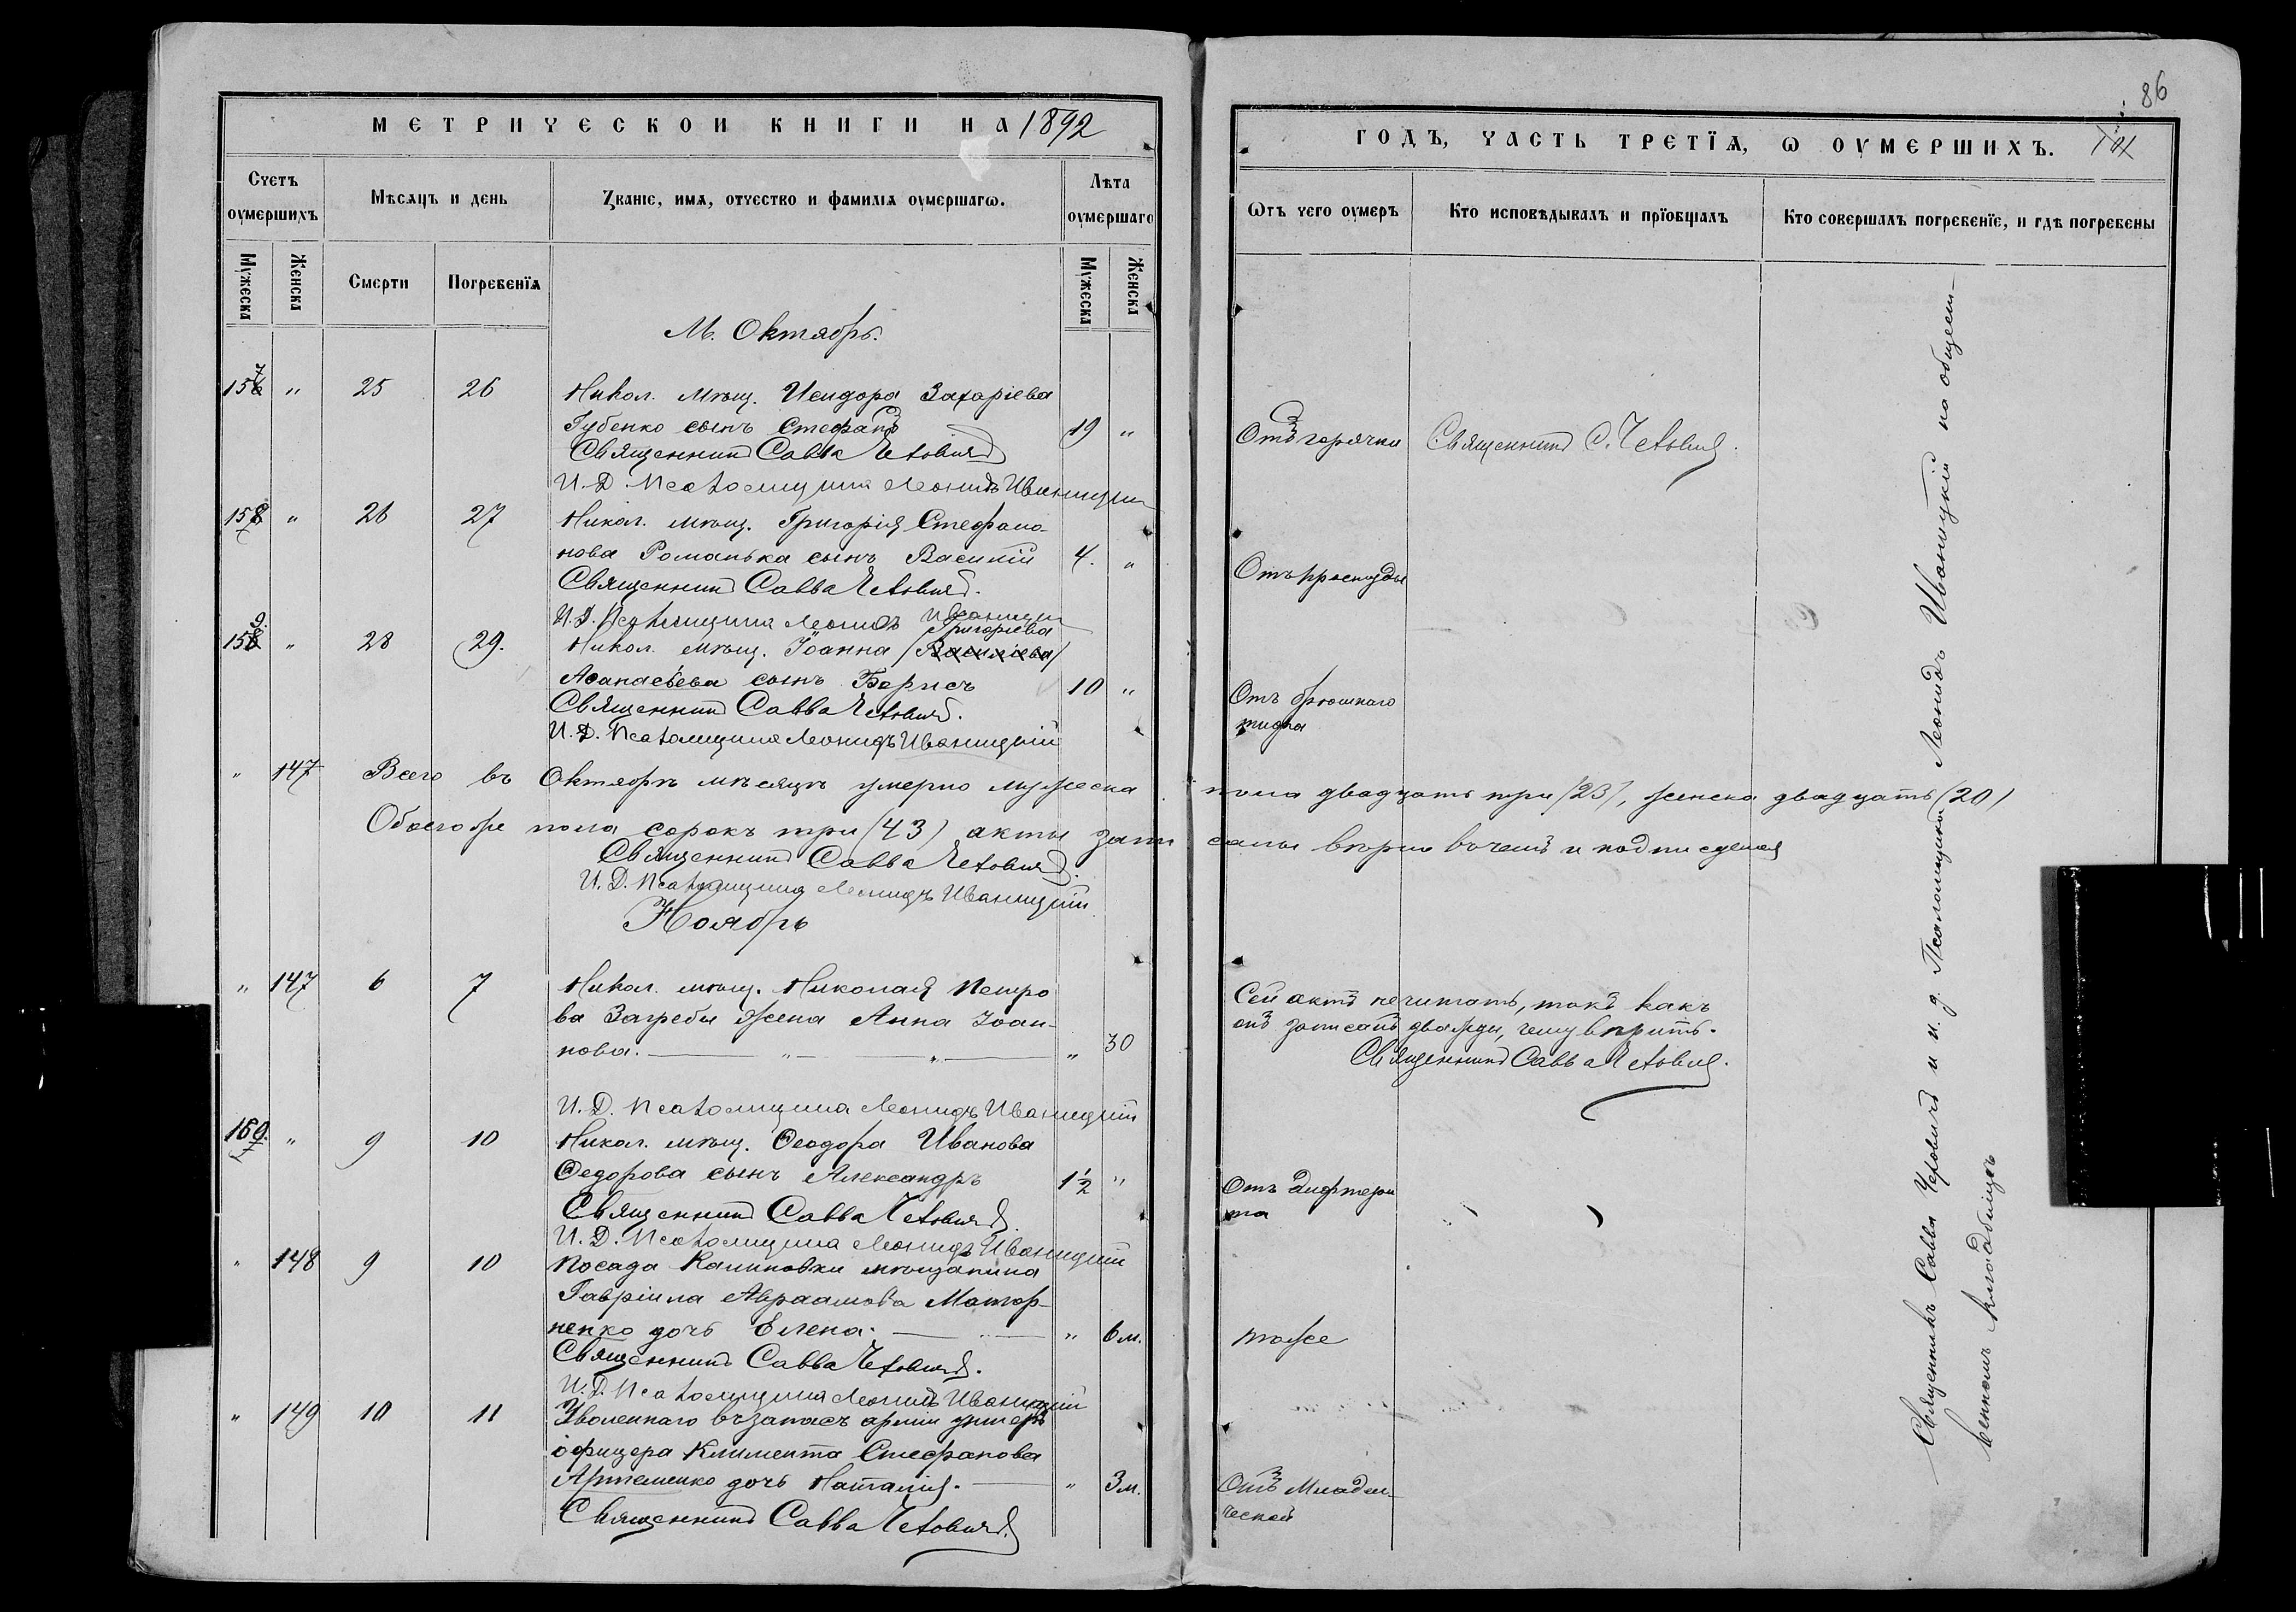 МЕТРИЧЕСКОЙ КНИГИ НА 1892
Счетъ оумершихъ
Мѣсяцъ и день
Званіе, имя, отчество и фамилія оумершагѡ.
Лѣта оумершаго
Мужеска
Женска
Смерти
Погребенїя
Мужеска
Женска
М. Октябрь.
157 " 25 26 Никол. мѣщ. Исидора Захаріева
Губенко сынъ Стефанъ 19 "
Священникъ Савва Чехович
И. Д. Псаломщика Леонидъ Иваницкій
158 " 26 27 Никол. мѣщ. Григорія Стефано-
нова Романька сынъ Василій 4. "
Священникъ Савва Чехович.
И. Д. Псаломщика Леонидъ Иваницкій
Григоріева
159. " 28 29. Никол. мѣщ. Іоанна (Василіева)
Аѳанасьева сынъ Борисъ 10 "
Священникъ Савва Чехович.
И. Д. Псаломщика Леонидъ Иваницкій
" 147 Всего въ Октябрѣ мѣсяцѣ умерло мужеска
Обоего бре пола сорокъ три (43) акты запи
Священникъ Савва Чехович.
И. Д. Псаломщика Леонидъ Иваницкій
Ноябрь
" 147 6 7 Никол. мѣщ. Николая Петро
ва Загребы жена Анна Іоан-
нова. " 30
И. Д. Псаломщика Леонидъ Иваницкій
159. " 9 10 Никол. мѣщ. Ѳеодора Иванова
Ѳедорова сынъ Александръ 1½ "
Священникъ Савва Чехович.
И. Д. Псаломщика Леонидъ Иваницкій
" 148 9 10 Посада Калиновки мѣщанина
Гавріила Авраамова
ненко дочь Елена. " 6 м.
Священникъ Савва Чехович.
И. Д. Псаломщика Леонидъ Иваницкій
" 149 10 11 Уволеннаго въ запасъ арміи унтеръ
офицера Климента Стефанова
Артеменко дочь Наталія. " 3 м.
Священникъ Савва Чехович.
86
ГОДЪ, ЧАСТЬ ТРЕТЇЯ, Ѡ ОУМЕРШИХЪ.
Ѿтъ чего оумеръ
Кто исповѣдывалъ и прїобщалъ
Кто совершалъ погребенїе, и гдѣ погребены
Отъ горячки Священникъ С. Чехович.
Отъ простуды
Отъ брюшнаго
тифа
пола двадцать три (23), женска двадцать (20)
саны вѣрно въ чемъ и подписуемся
Сей актъ нечитать, такъ какъ
онъ записанъ дважды, чему вѣрить.
Священникъ Савва Чехович.
Отъ дифтери
та
тоже
Отъ Младен-
ческой
Священникъ Савва Чеховичъ и и. д. Псаломщика Леонидъ Иваницкій на общест-
венномъ кладбищѣ